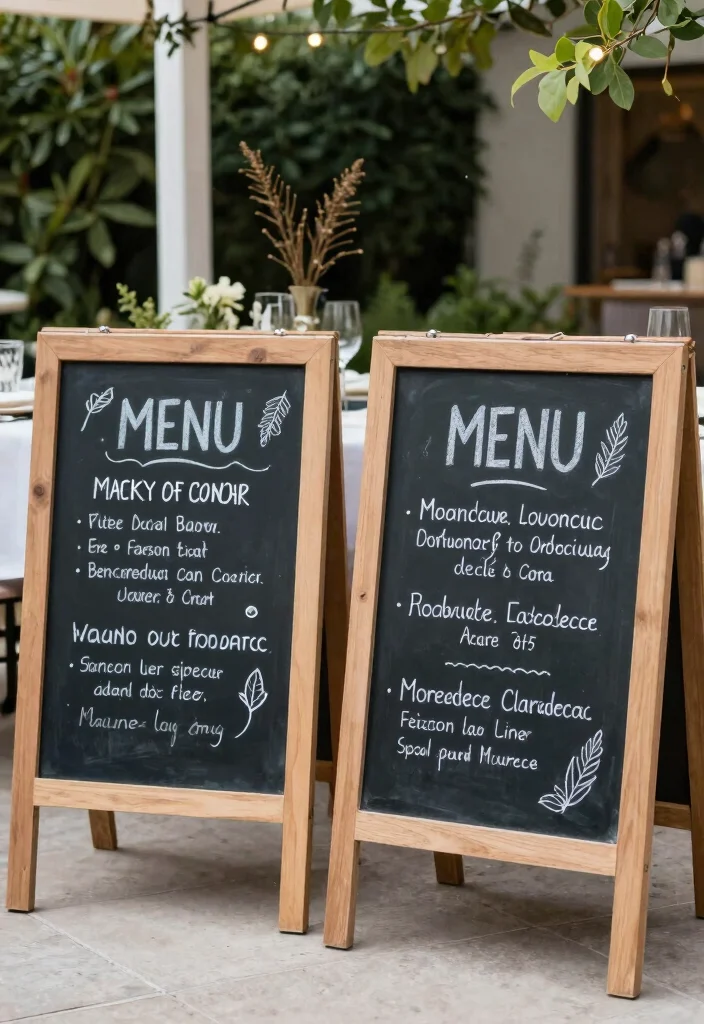 MENU
MACKY OF CONOIR
• Pitee Doral Baovr.
• Ere o Farson tiat
• Bencereduas Can Coarier.
Uover, & Crart
WaUNO OUt FOODATC.
• Sancon lar gipecur
adanl dãc fleo,
Maurne- lag omg
MENU
• Moandcuve. Lovoncuc
to Ordociuag
decle & Cora
• Roabrate. Eatcolecce
Acare
• Moreedece Clardecac
Feizcon lao Liner
Spool purd Mourece